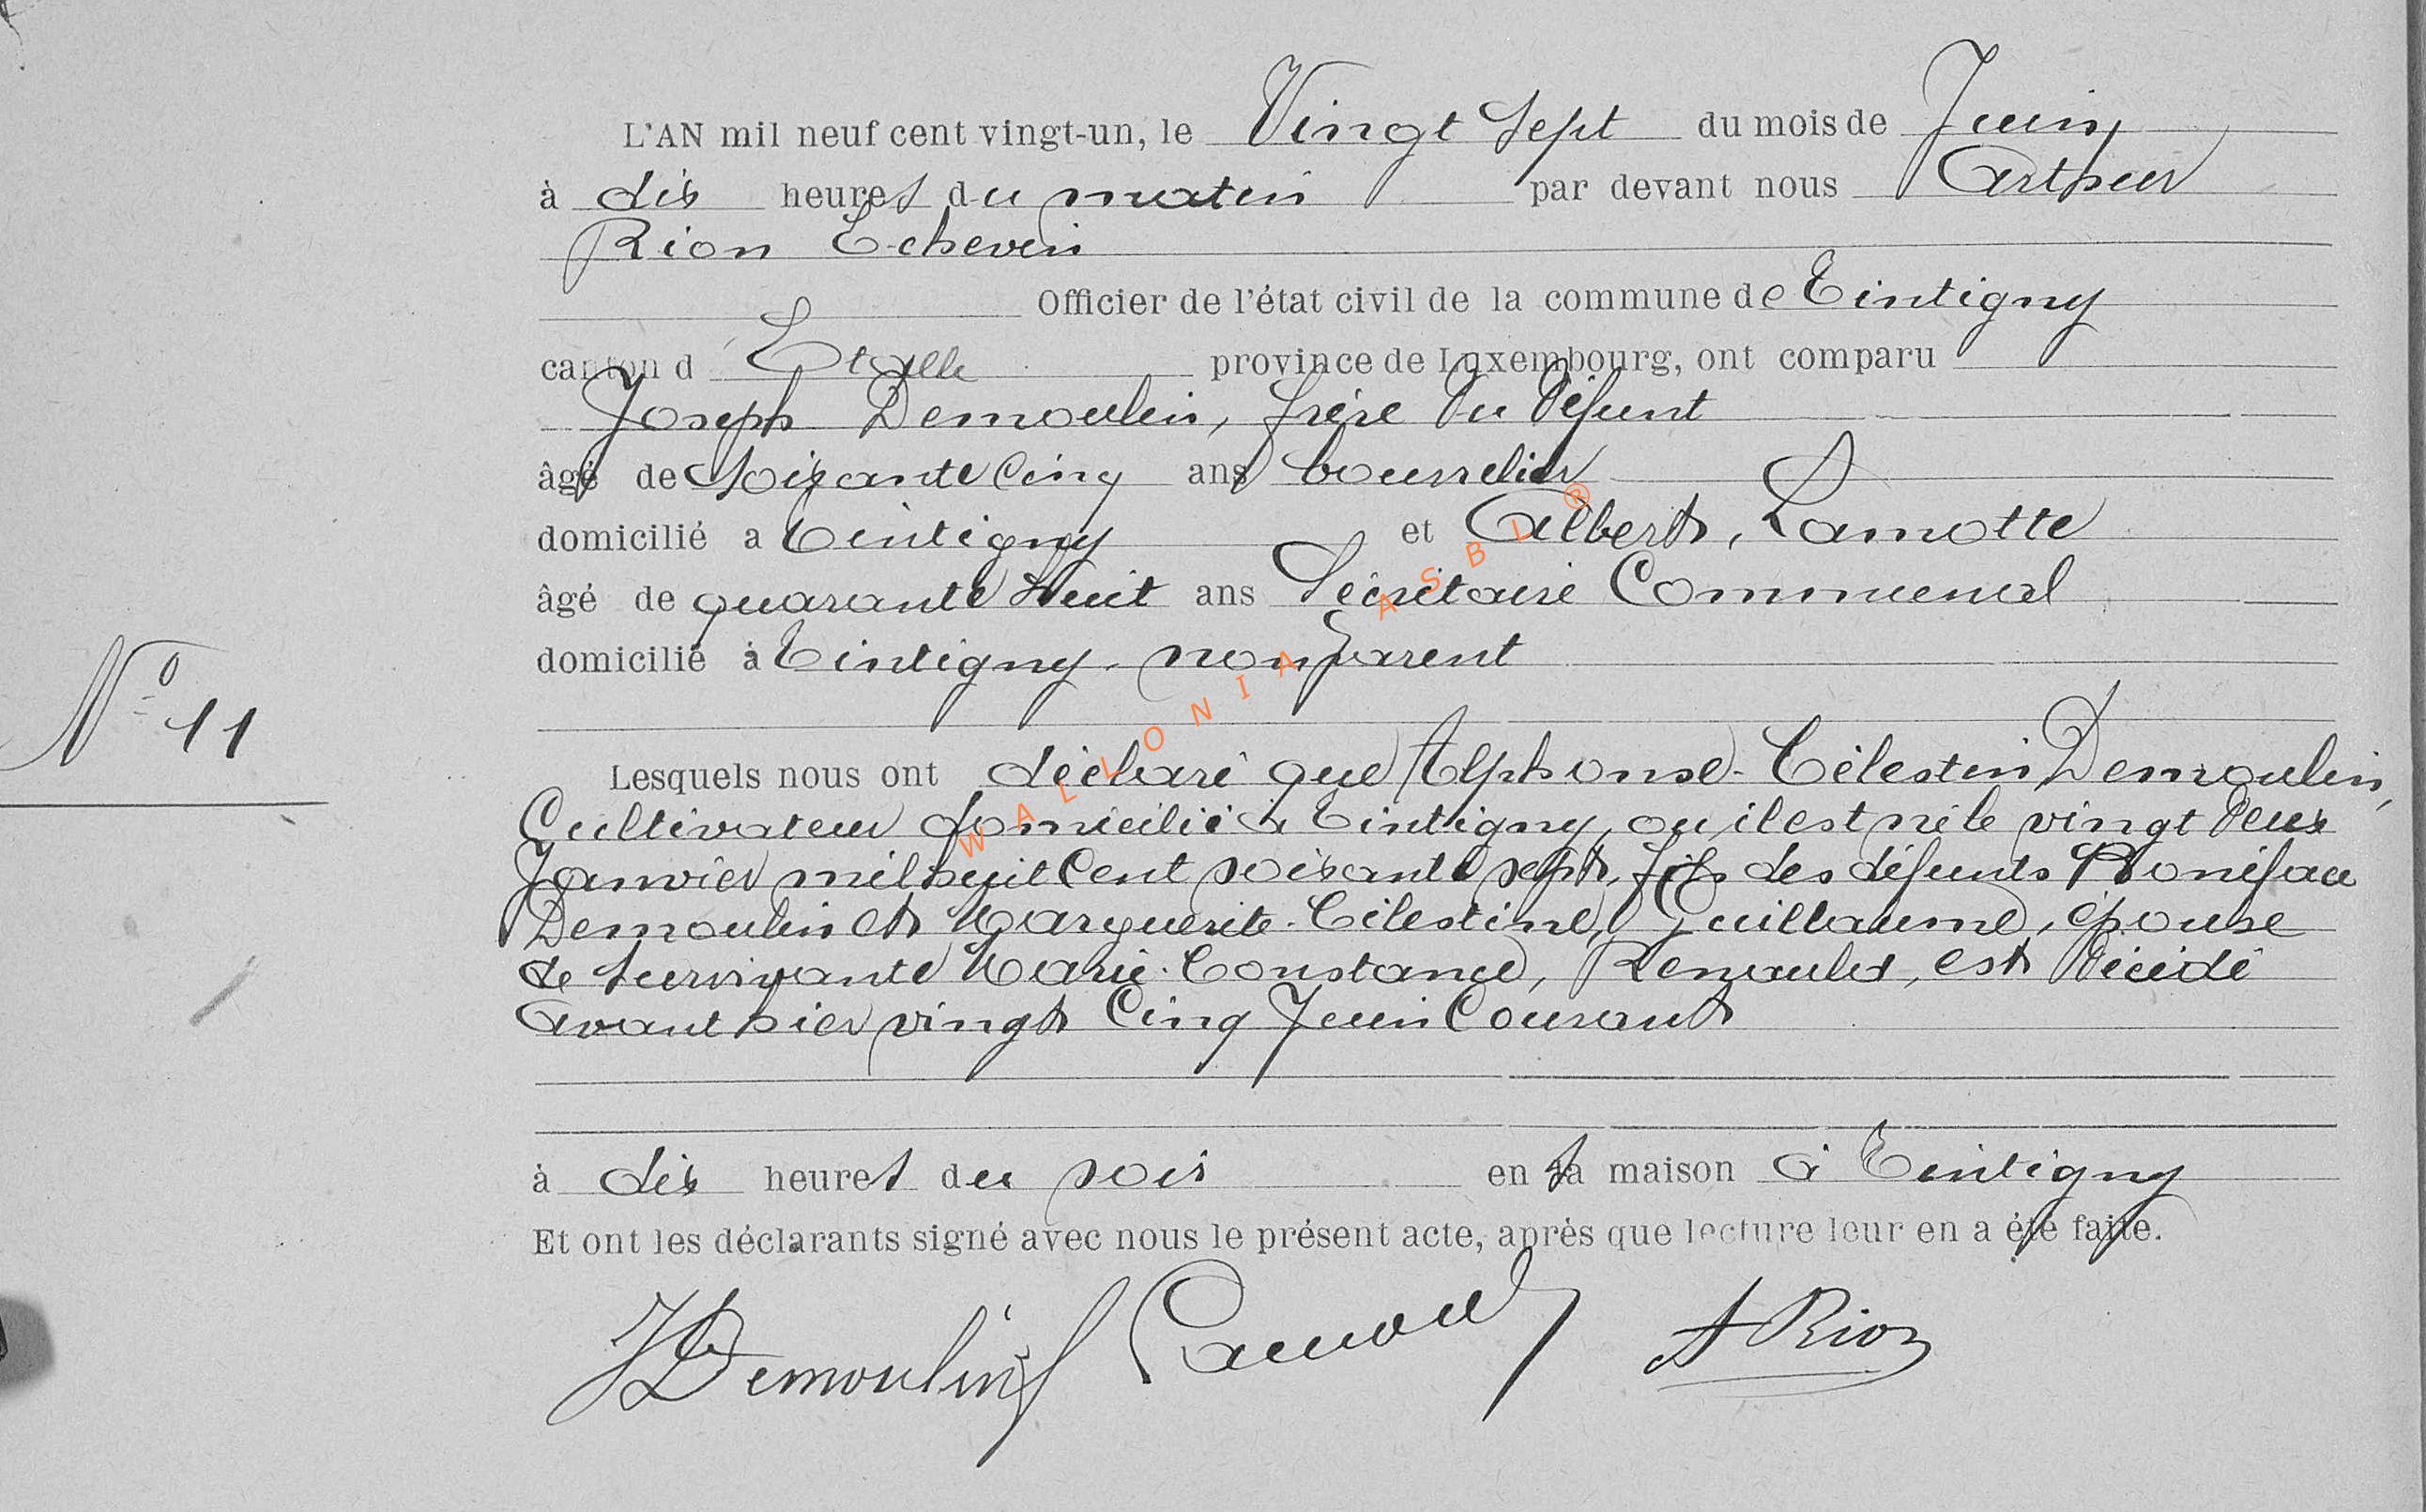 L'AN mil neuf cent vingt-un, le Vingt Sept du mois de Juin
à dix heures du matin par devant nous Arthur
Rion Echevin
Officier de l'état civil de la commune de Tintigny
canton d Etalle province de Luxembourg, ont comparu
Joseph Demoulin, frère du défunt
âgé de Soixante Cinq ans bourrelier
domicilié a Tintigny et Albert, Lamotte
âgé de quarante huit ans Secrétaire Communal
domicilié à Tintigny. non parent
N° 11
Lesquels nous ont déclaré que Alphonse-Célestin Demoulin,
Cultivateur domicilié à Tintigny, ou il est né le vingt deux
Janvier mil huit Cent soixante sept, fils des défunts Boniface
Demoulin et Marguerite-Célestine, Guillaume, épouse
de survivante Marie-Constance, Renauld, est décédé
avant hier vingt Cinq Juin Courant
à dix heures du soir en sa maison à Tintigny
Et ont les déclarants signé avec nous le présent acte, après que lecture leur en a été faite.
J Demoulin Lamotte A Rion
WALLONIA ASBL ®